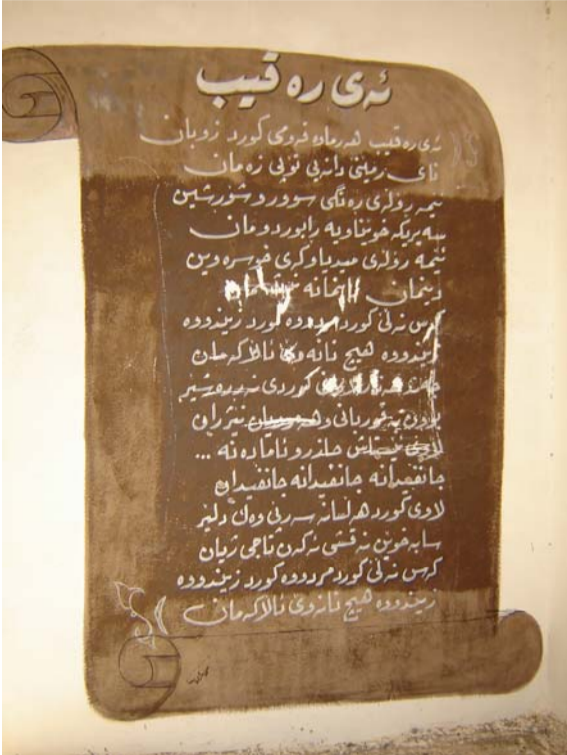 ئەی رەقیب
ئەی رەقیب هەر ماوە قەومی کورد زوبان
نای رمێنێ دانەیی تۆپی زەمان
ئیمە رۆڵەی رەنگی سوور و شۆرشین
سەیریکە خوێناویە رابوردومان
ئیمە رۆڵەی میدیا و کەی خوسرەوین
دینمان ئایمانە
کەس نەڵێ کورد مردووە کورد زیندووە
زیندووە هیچ نانەوێ ئاڵاکەمان
کوردی
بوون بە قوربانی و نێژران
حازر و ئامادەنە ...
جانفیدانە جانفیدانە جانفیدان
لاوی کورد هەڵسانە سەرپێ وەک دلێر
سابەخوێن نەقشی ئەکەن تاجی ژیان
کەس نەڵێ کورد مردووە کورد زیندووە
زیندووە هیچ نانەوێ ئاڵاکەمان